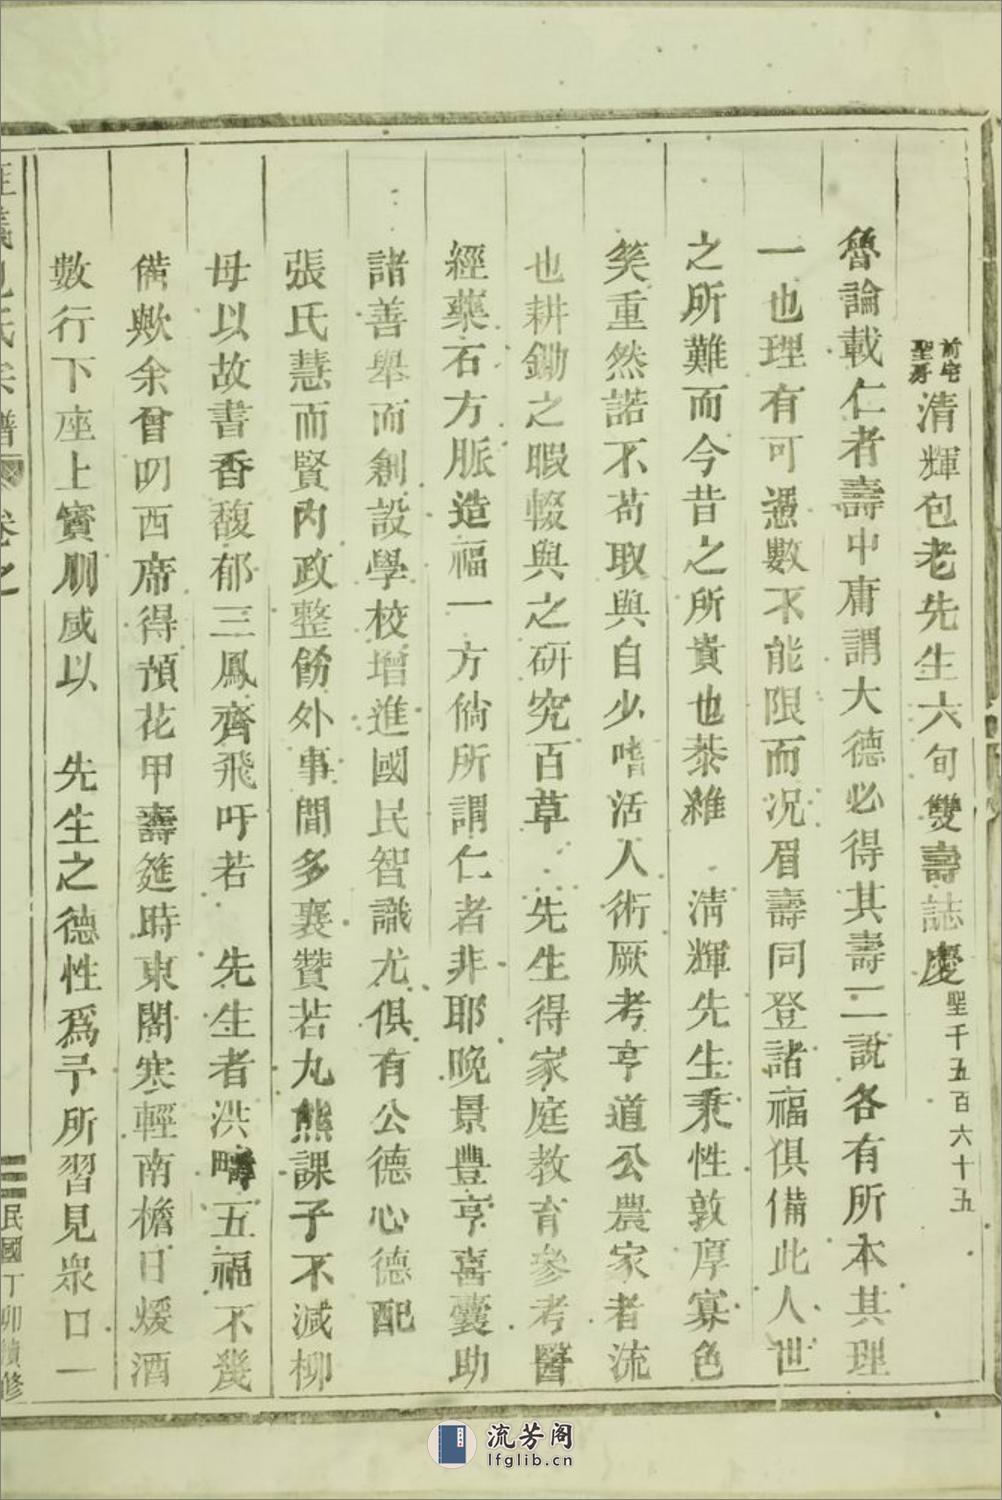 前宅
聖房
清輝包老先生六旬雙壽誌慶 聖千五百六十五
魯論載仁者壽中庸謂大德必得其壽二說各有所本其理
一也理有可憑數不能限而況眉壽同登諸福俱備此人世
之所難而今昔之所貴也恭維 清輝先生秉性敦厚寡色
笑重然諾不苟取與自少嗜活人術厥考亨道公農家者流
也耕鋤之暇輟與之研究百草 先生得家庭教育參考醫
經藥石方脈造福一方倘所謂仁者非耶晚景豐亨喜囊助
諸善舉而創設學校增進國民智識尤俱有公德心德配
張氏慧而賢內政整飭外事間多襄贊若丸熊課子不減柳
母以故書香馥郁三鳳齊飛吁若 先生者洪疇五福不幾
備歟余曾叨西席得預花甲壽筵時東閣寒輕南檐日煖酒
數行下座上賓朋咸以 先生之德性為予所習見眾口一
氏宗譜 卷之
民國丁卯續修
流芳阁
lfglib.cn